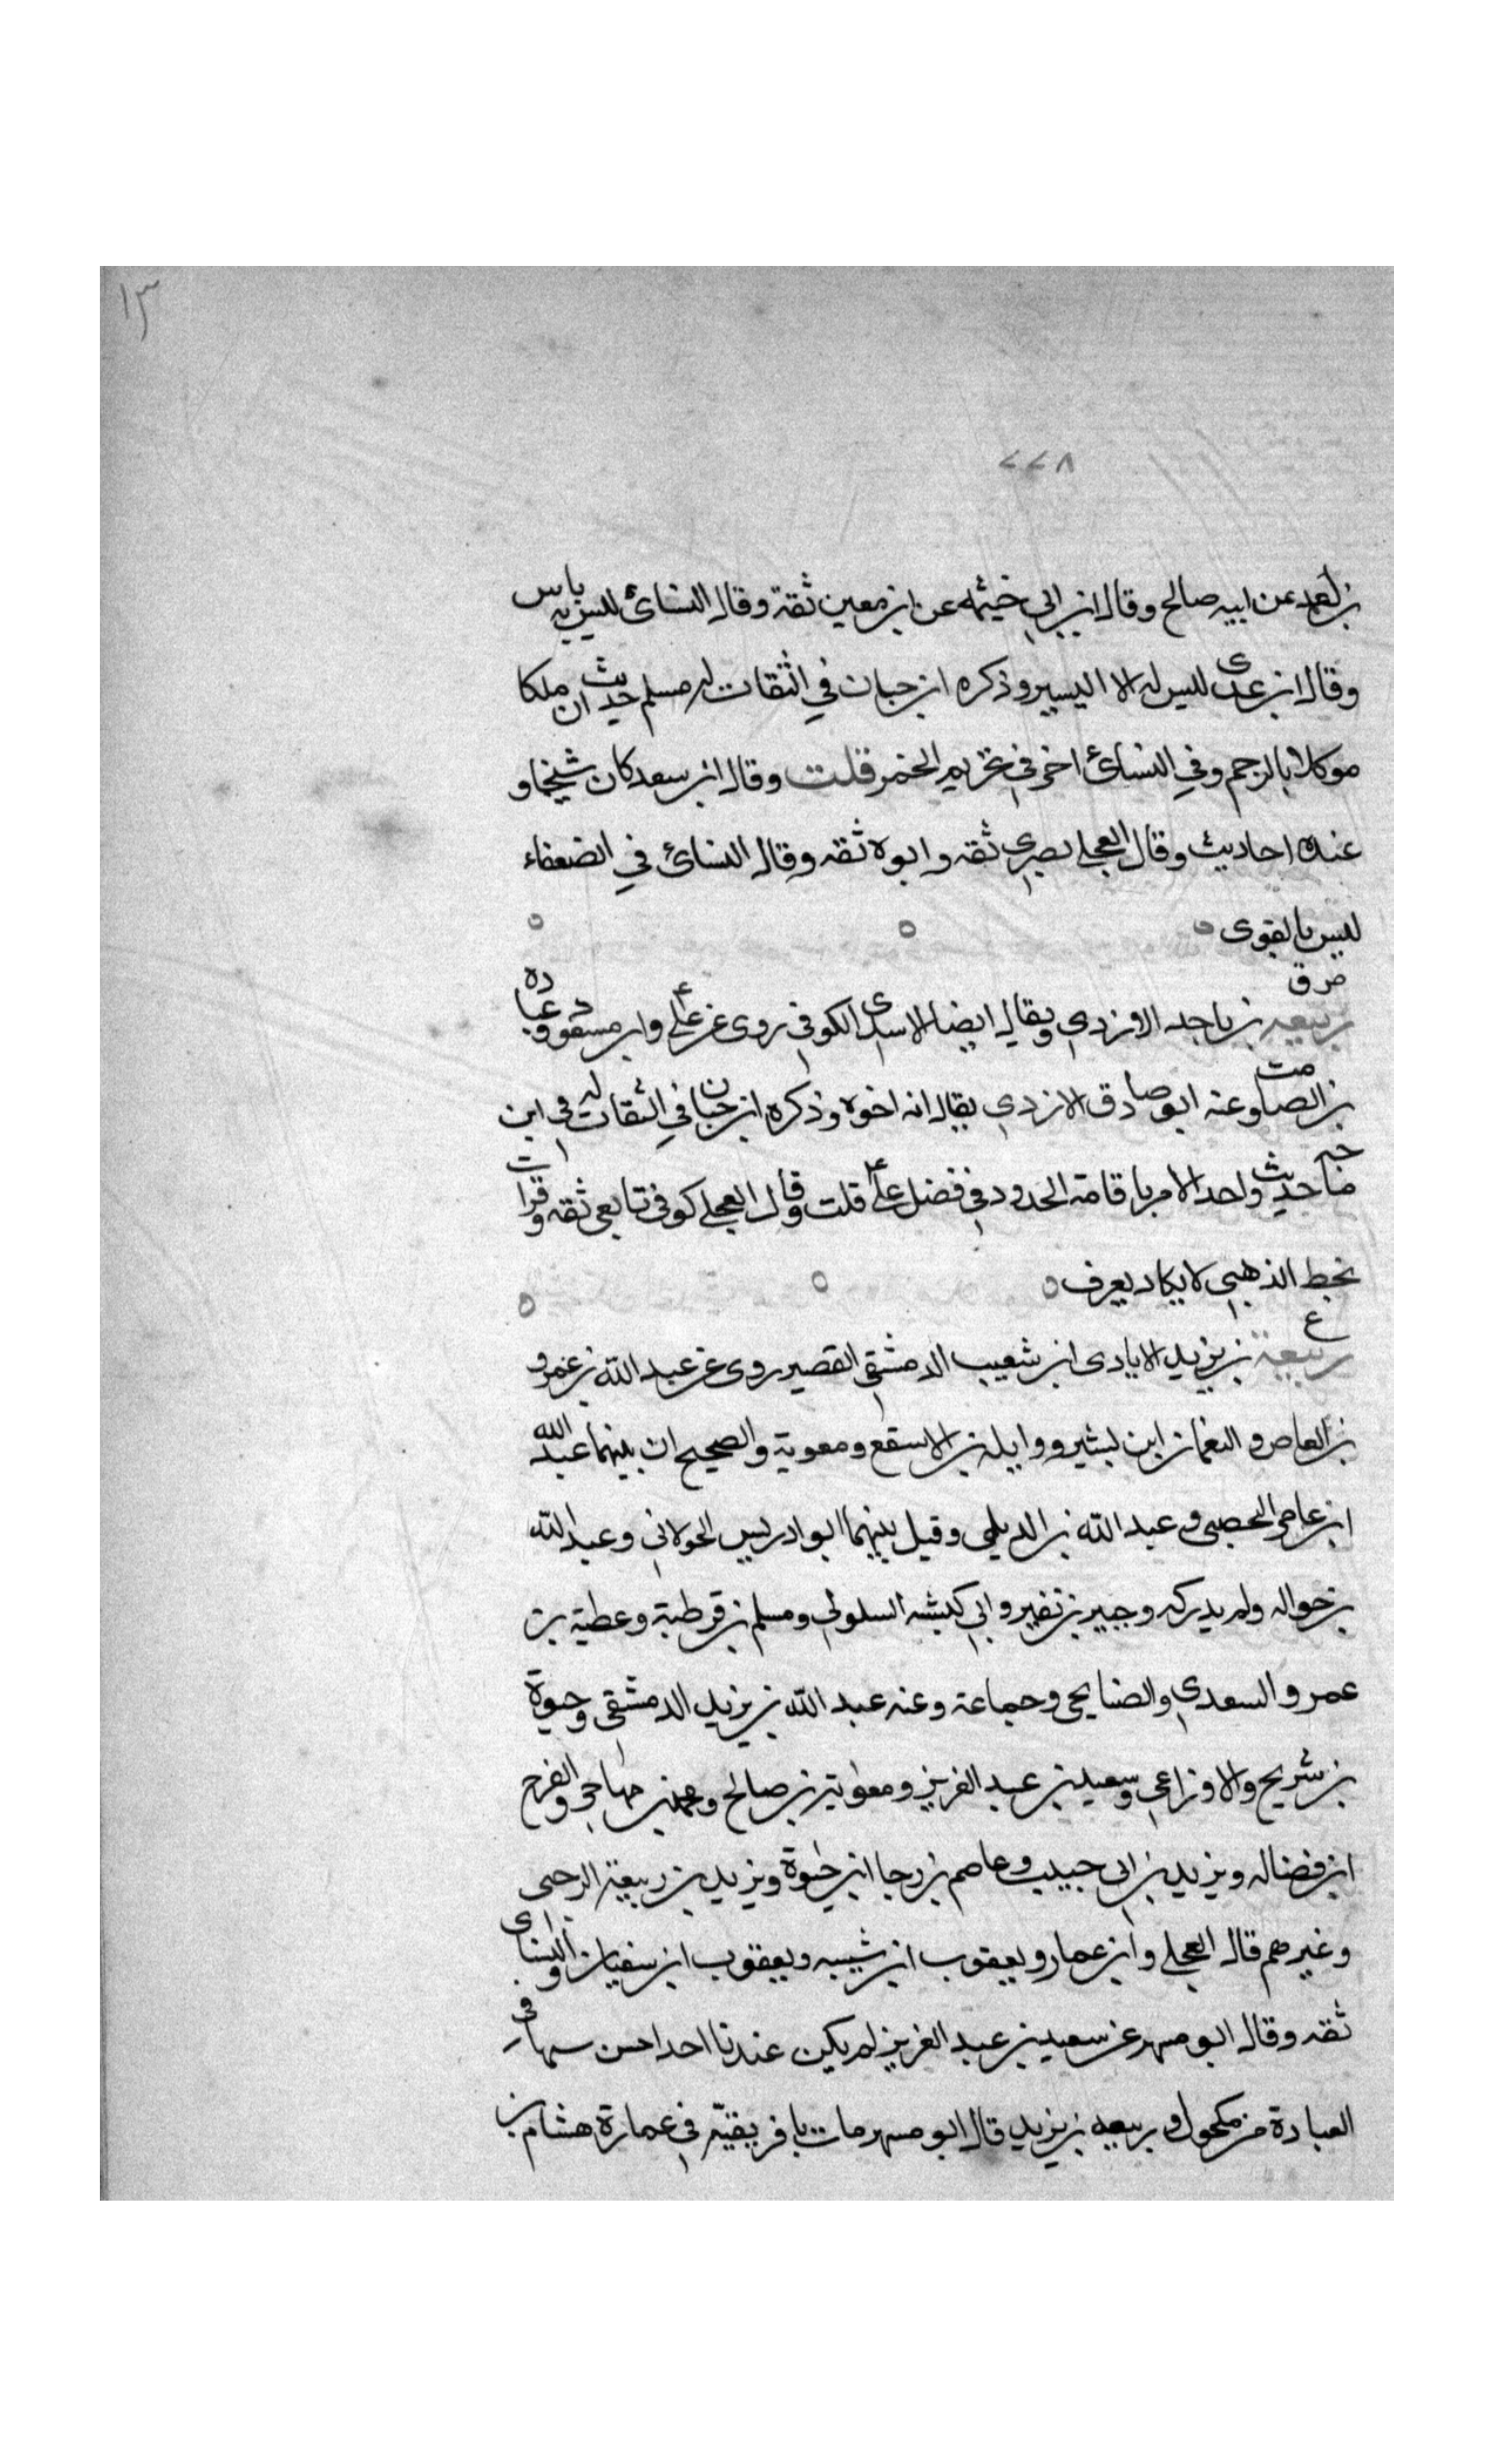 ١٣
٢٢٨
بن احمد عن ابيه صالح وقال ابن ابي خيثمه عن ابن معين ثقة وقال النسائ ليس به باس
وقال ابن عدى ليس له الا اليسير وذكره ابن حبان في الثقات له مسلم حديث ان ملكا
موكلا بالرجم وفي النسائ اخر في تحريم الخمر قلت وقال ابن سعد كان شيخا و
عنده احاديث وقال العجلي بصري ثقه وابوه ثقه وقال النسائ في الضعفاء
ليس بالقوى
ص ق
ربيعه بن ناجد الازدي ويقال ايضا الاسدى الكوفي روى عن علي وابن مسعود وعباده
بن الصامت وعنه ابو صادق الازدي يقال انه اخوه وذكره ابن حبان في الثقات له في ابن
ماجه حديث واحد الامر باقامة الحدود في فضل علي قلت وقال العجلي كوفي تابعي ثقه وقرات
بخط الذهبي لا يكاد يعرف
ع
ربيعة بن يزيد الايادى ابن شعيب الدمشقي القصير روى عن عبد الله بن عمرو
بن العاص والنعمان ابن بشير وواثلة بن الاسقع ومعوية والصحيح ان بينهما عبد الله
ابن عامر اليحصبي وعبد الله بن الديلمي وقيل بينهما ابو ادريس الخولاني وعبد الله
بن حواله ولم يدركه وجبير بن نفير وابي كبشه السلولي ومسلم بن قرظة وعطية بن
عمرو السعدي والصنابحي وجماعة وعنه عبد الله بن يزيد الدمشقي وحيوة
بن شريح والاوزاعي وسعيد بن عبد العزيز ومعوية بن صالح ومحمد بن مهاجر والفرج
ابن فضاله ويزيد بن ابي حبيب وعاصم بن رجا ابن حيوة ويزيد بن ربيعة الرحبي
وغيرهم قال العجلي وابن عمار ويعقوب ابن شيبه ويعقوب ابن سفيان والنساى
ثقه وقال ابو مسهر عن سعيد بن عبد العزيز لم يكن عندنا احد احسن سمتا في
العبادة من مكحول وربيعه بن يزيد قال ابو مسهر مات بافريقية في عمارة هشام بن